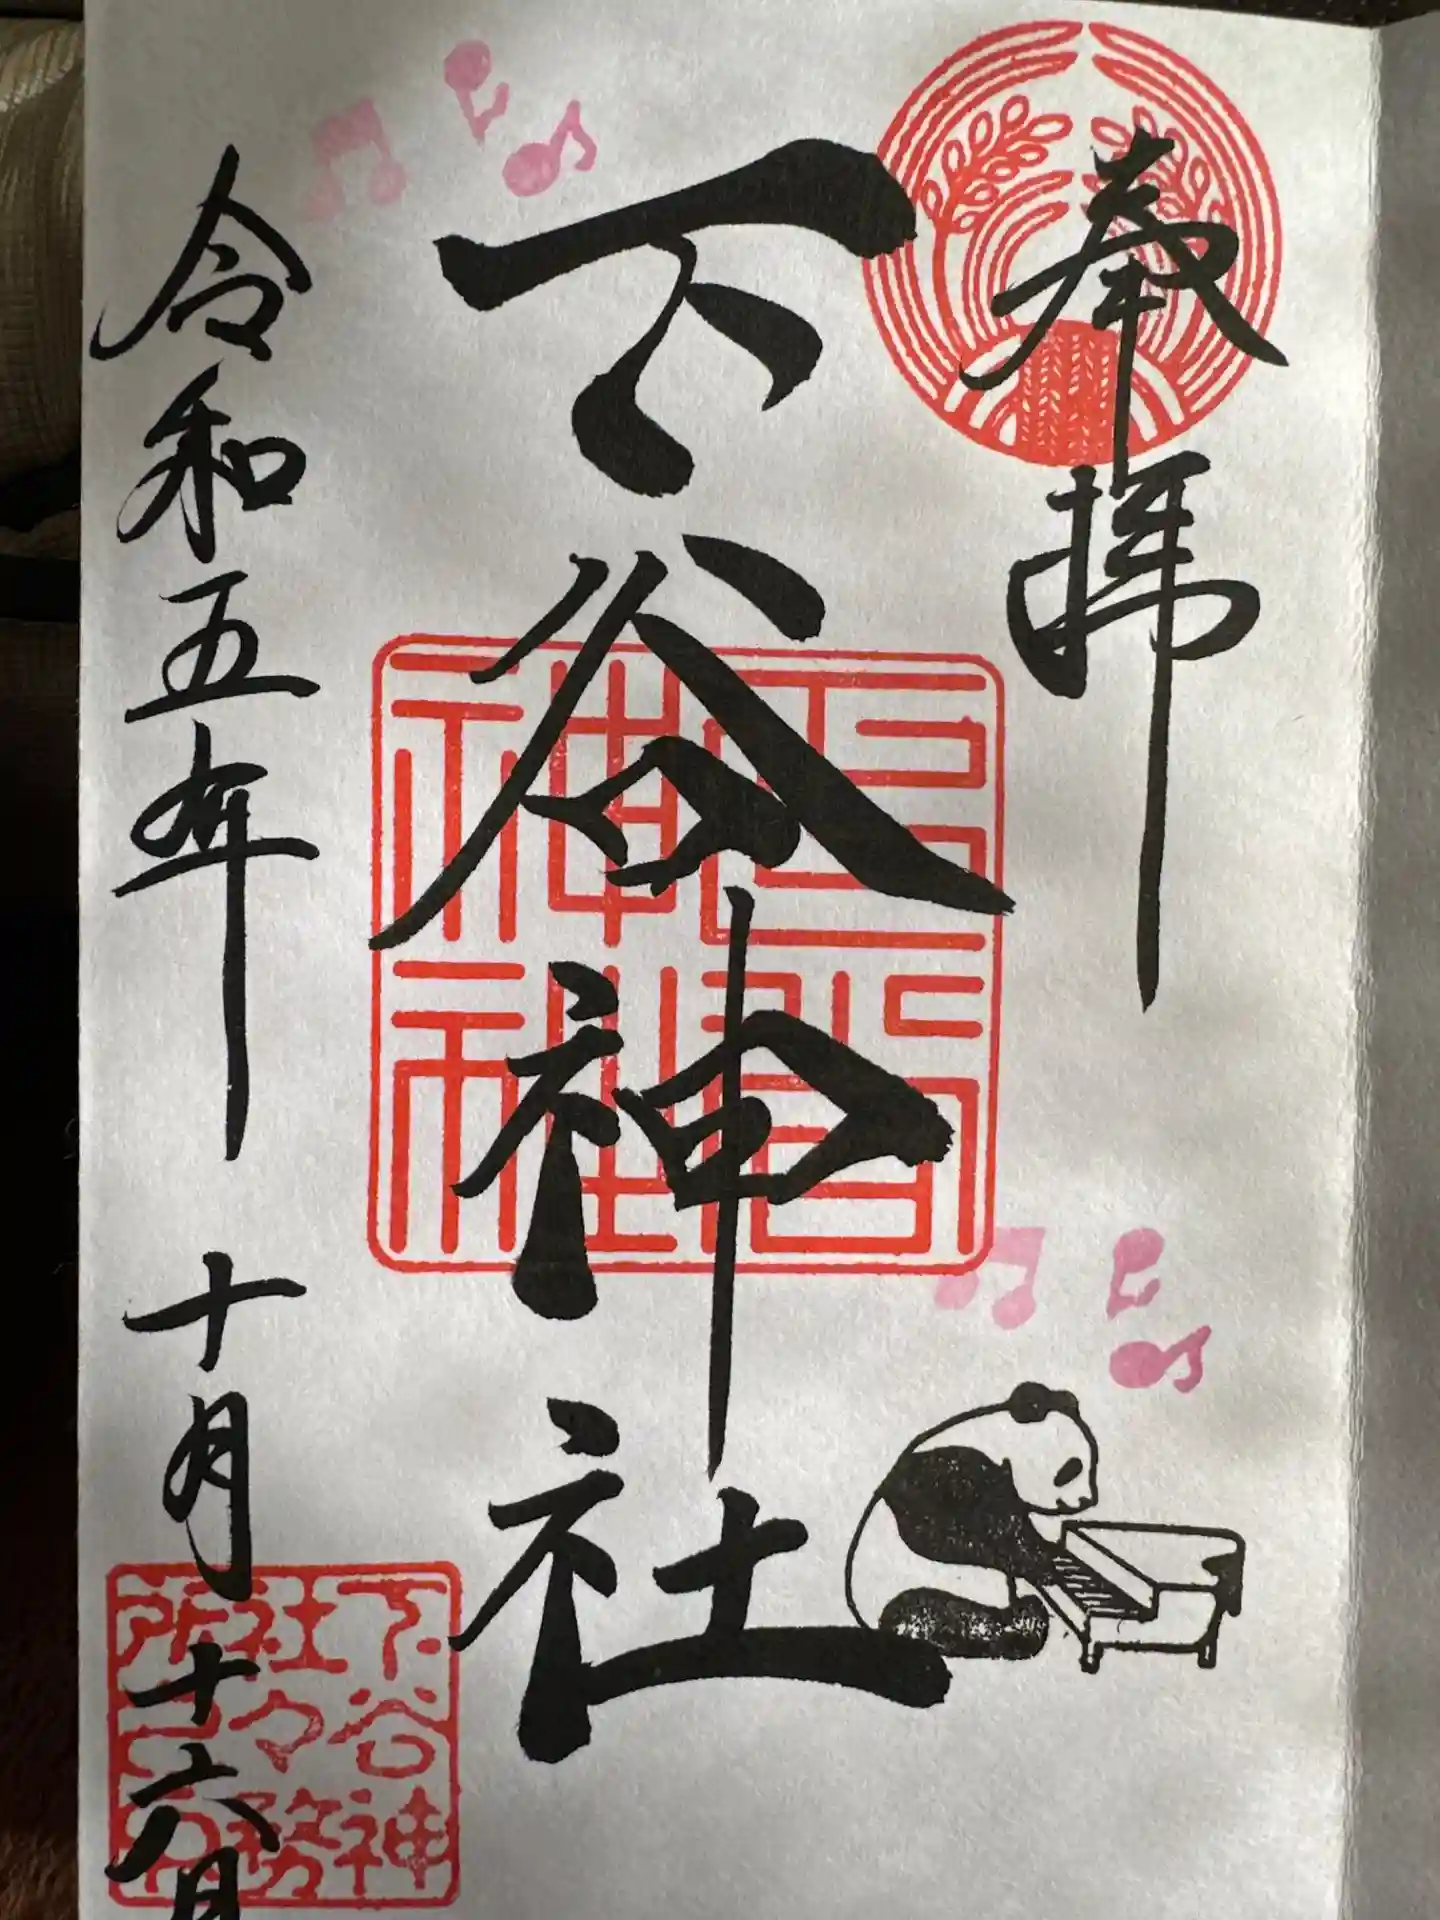 奉拝
下谷神社
令和五年 十月十六日
下谷神
社々務
所之印